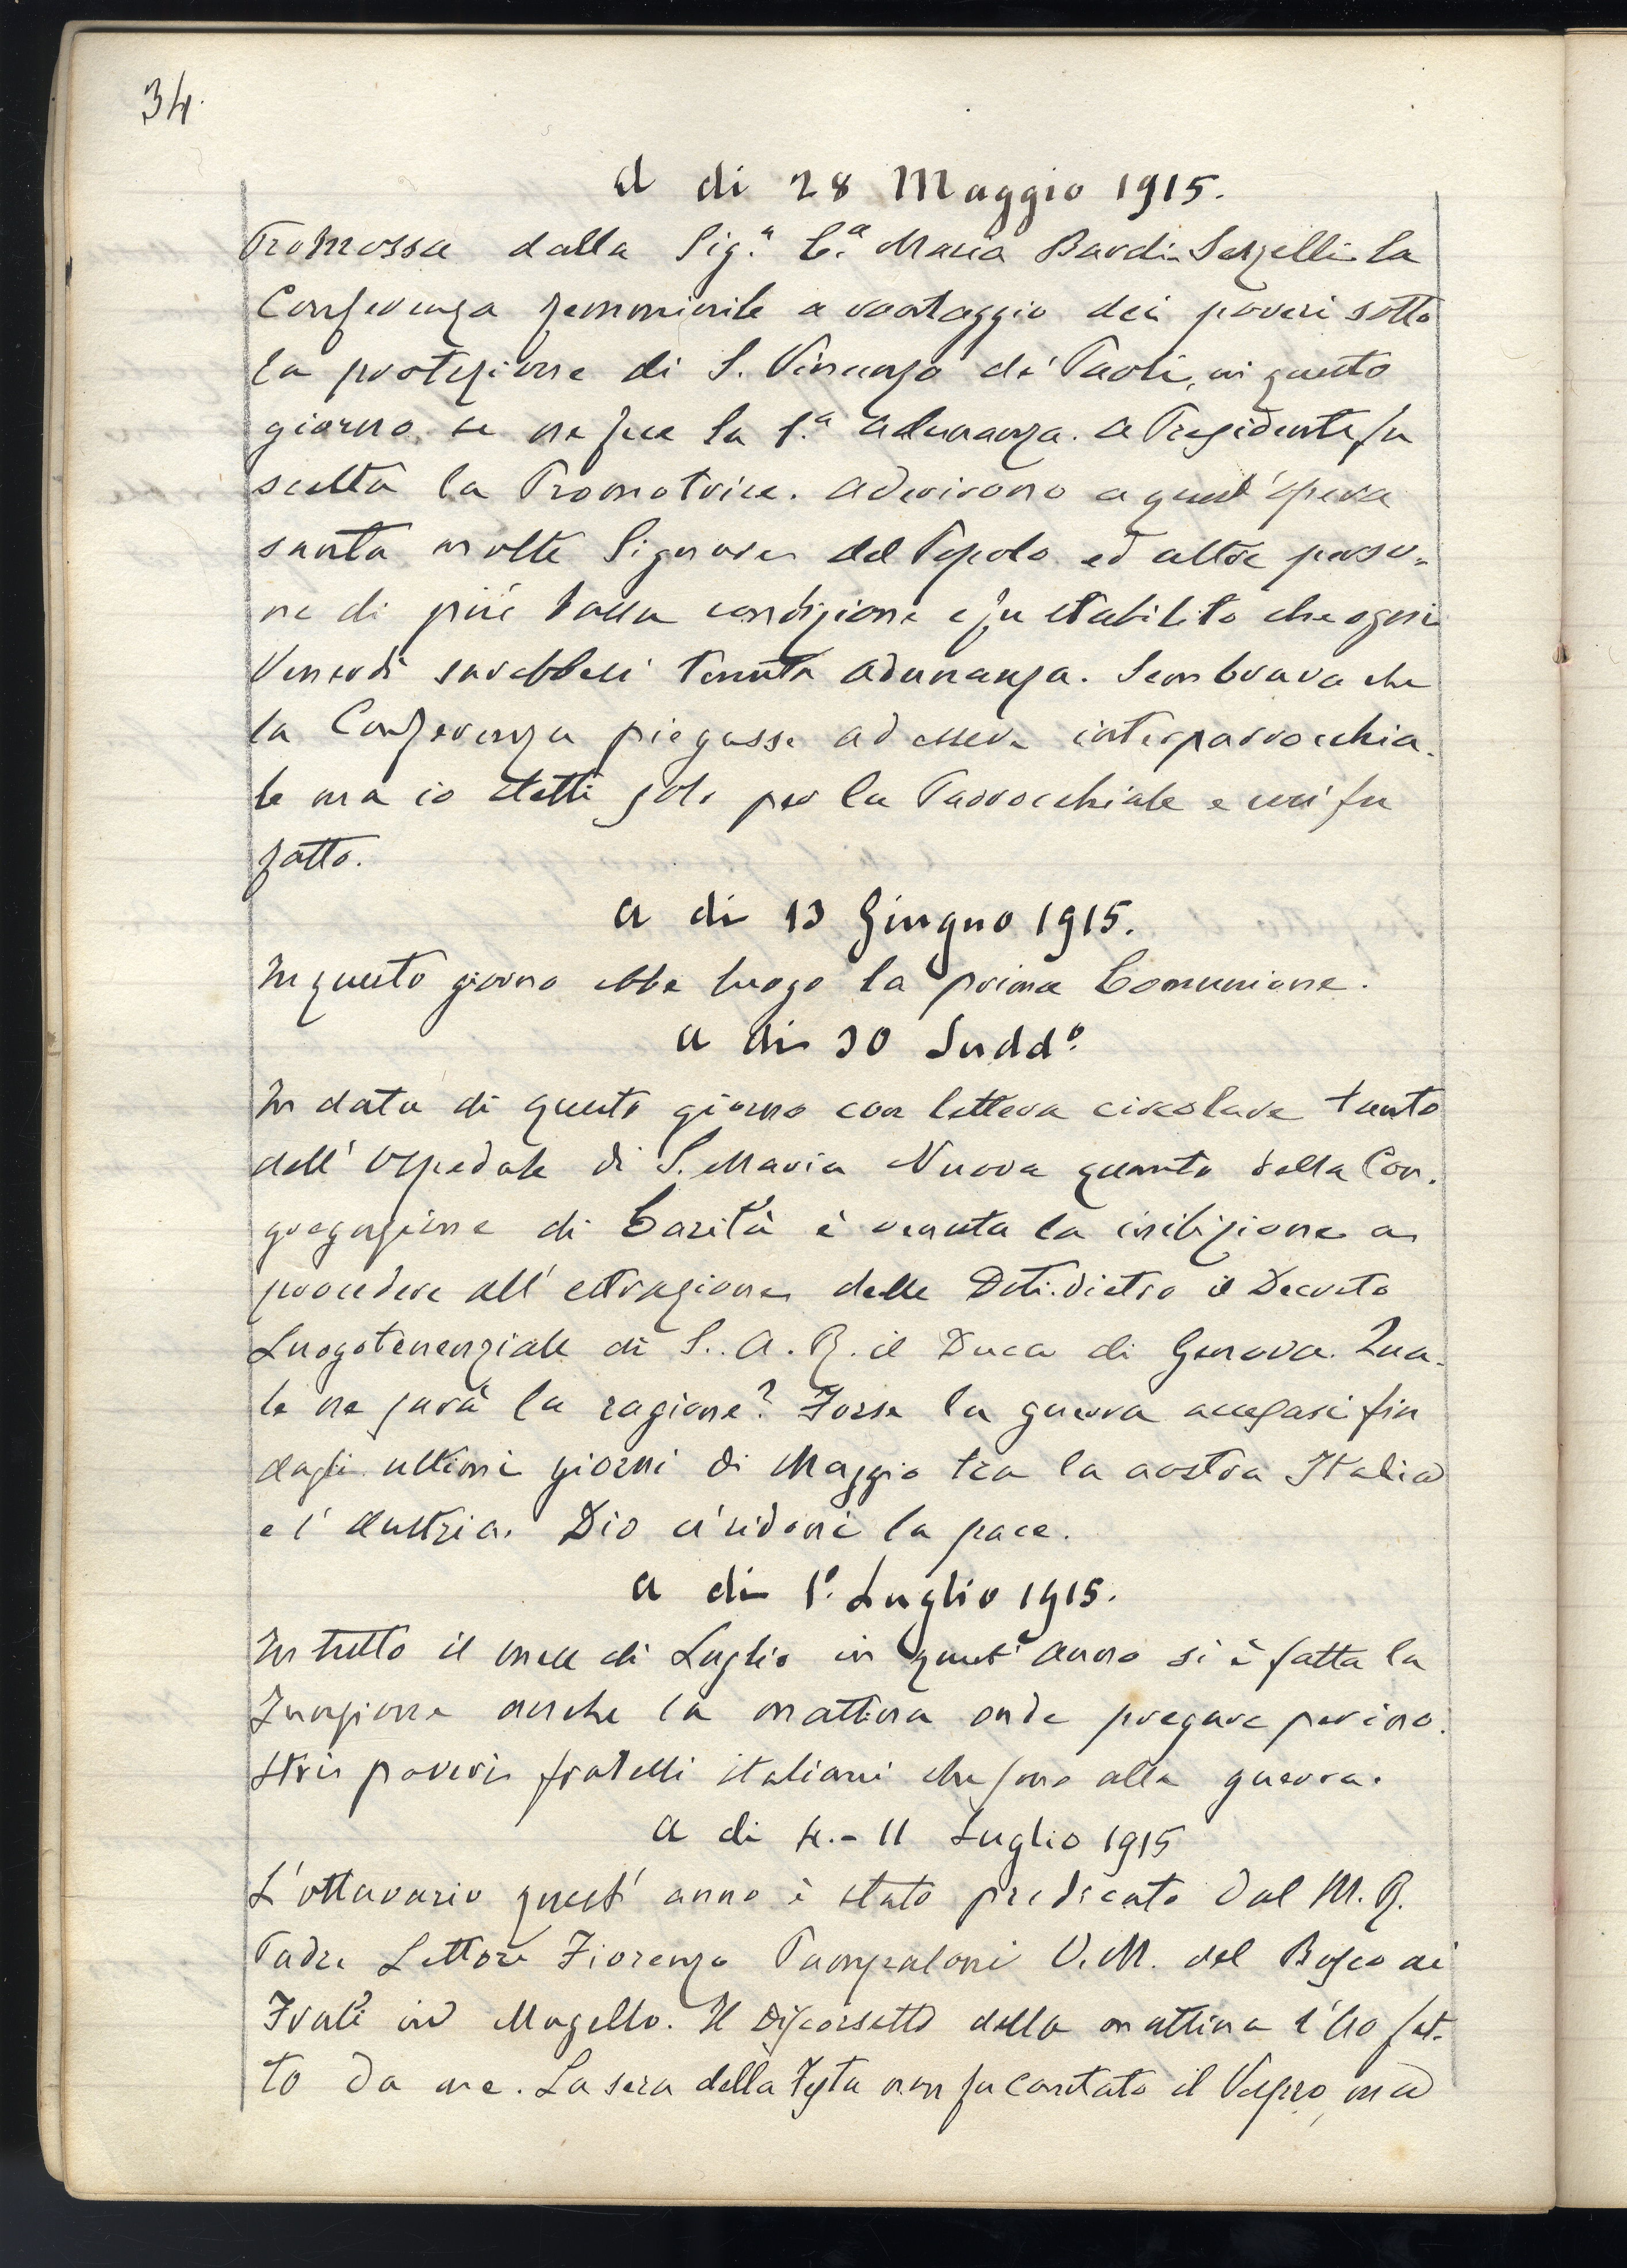 34.
A di 28 Maggio 1915.
Promossa dalla Sig.ª C.ª Maria Bardi-Serzelli la
Conferenza femminile a vantaggio dei poveri sotto
la protezione di S. Vincenzo de' Paoli, in questo
giorno se ne fece la 1.ª adunanza. A Presidente fu
scelta la Promotrice. Aderirono a quest'opera
santa molte Signore del Popolo ed altre perso-
ne di più bassa condizione e fu stabilito che ogni
Venerdì sarebbesi tenuta adunanza. Sembrava che
la Conferenza piegasse ad essere interparrocchia-
le ma io stetti solo per la Parrocchiale e così fu
fatto.
A di 13 Giugno 1915.
In questo giorno ebbe luogo la prima Comunione.
A di 30 Sudd.º
In data di questo giorno con lettera circolare tanto
dell'Ospedale di S. Maria Nuova quanto della Con-
gregazione di Carità è venuta la inibizione a
procedere all'estrazione delle Doti dietro il Decreto
Luogotenenziale di S. A. R. il Duca di Genova. Qua-
le ne sarà la ragione? Forse la guerra accesasi fin
dagli ultimi giorni di Maggio tra la nostra Italia
e l'Austria. Dio ci ridoni la pace.
A di 1.º Luglio 1915.
In tutto il mese di Luglio in quest'anno si è fatta la
Funzione anche la mattina onde pregare per i no-
stri poveri fratelli italiani che sono alla guerra.
A di 4.-11 Luglio 1915
L'ottavario quest'anno è stato predicato dal M. R.
Padre Lettore Fiorenzo Pampaloni O. M. del Bosco ai
Frati in Mugello. Il discorsetto della mattina l'ho fat-
to da me. La sera della Festa non fu cantato il Vespro, ma